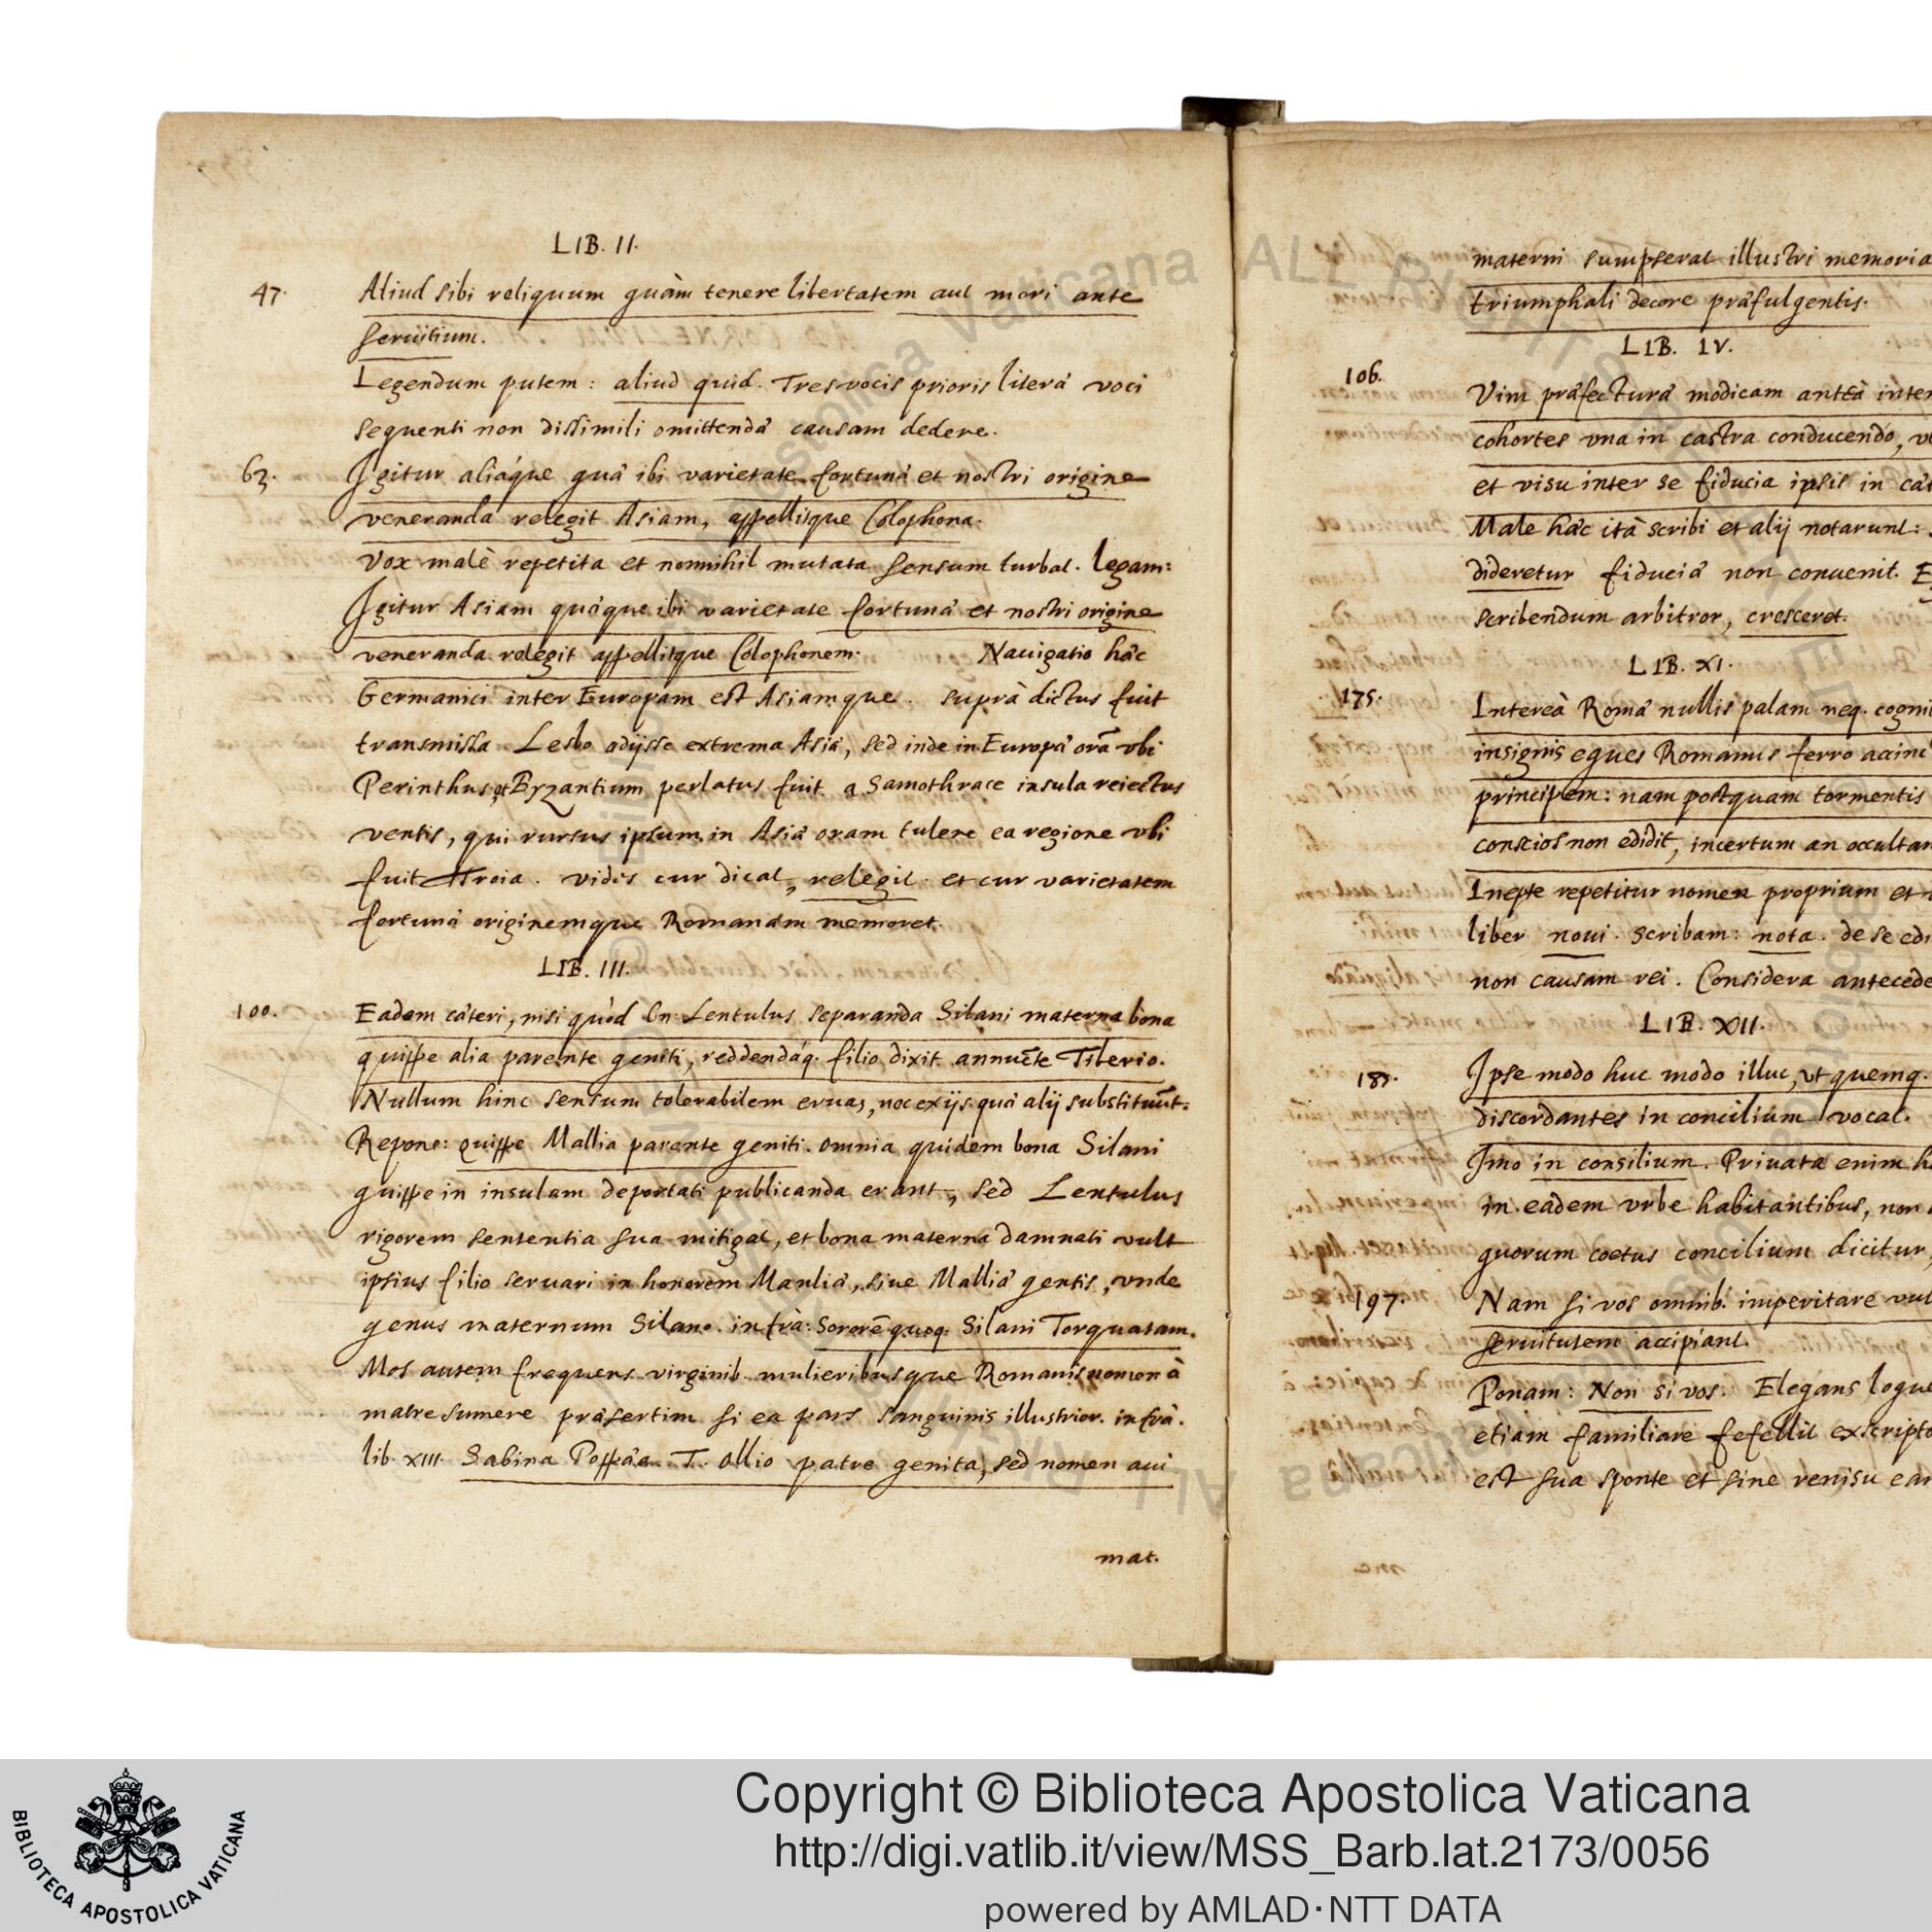 LIB. II.
47. Aliud sibi reliquum quàm tenere libertatem aut mori ante
seruitium.
Legendum putem: aliud quid. Tres vocis prioris literæ voci
sequenti non dissimili omittendæ causam dedere.
63. Igitur aliáque quæ ibi varietate fortunæ et nostri origine
veneranda relegit Asiam, appellitque Colophona.
Vox malè repetita et nonnihil mutata sensum turbat. legam:
Igitur Asiam quæque ibi varietate fortunæ et nostri origine
veneranda relegit appellitque Colophonem. Nauigatio hæc
Germanici inter Europam est Asiamque. suprà dictus fuit
transmissa Lesbo adijsse extrema Asiæ, sed inde in Europæ orā vbi
Perinthus, et Byzantium perlatus fuit a Samothrace insula reiectus
ventis, qui rursus ipsum in Asiæ oram tulere ea regione vbi
fuit Troia. vides cur dicat, relegit. et cur varietatem
fortunæ originemque Romanam memoret.
LIB. III.
100. Eadem cæteri, nisi quòd Cn. Lentulus separanda Silani materna bona
quippe alia parente geniti, reddendáq. filio dixit annuēte Tiberio.
Nullum hinc sensum tolerabilem eruas, nec ex ijs quæ alij substituūt.
Repone: quippe Mallia parente geniti. omnia quidem bona Silani
quippe in insulam deportati publicanda erant, sed Lentulus
rigorem sententia sua mitigat, et bona materna damnati vult
ipsius filio seruari in honorem Manliæ, siue Malliæ gentis, vnde
genus maternum Silano. infrà: Sororē quoq. Silani Torquatam.
Mos autem frequens virginib. mulieribusque Romanis nomen à
matre sumere præsertim si ea pars sanguinis illustrior. infrà.
lib. XIII. Sabina Poppæa T. Ollio patre genita, sed nomen aui
mat.
materni sumpserat illustri memoria
triumphali decore præfulgentis.
LIB. IV.
106. Vim præfecturæ modicam anteà inten
cohortes vna in castra conducendo,
et visu inter se fiducia ipsis in
Male hæc ità scribi et alij notarunt:
dideretur fiduciæ non conuenit.
scribendum arbitror, cresceret.
LIB. XI.
175. Intereà Romæ nullis palam neq. cogni
insignis eques Romanus ferro accinc
principem: nam postquam tormentis
conscios non edidit, incertum an occultan
Inepte repetitur nomen proprium et
liber noui. scribam: nota. de se edi
non causam rei. Considera antecede
LIB. XII.
Ipse modo huc modo illuc, vt quemq.
discordantes in concilium vocat.
Imo in consilium. Priuatæ enim
in eadem vrbe habitantibus, non
quorum coetus concilium dicitur,
197. Nam si vos omnib. imperitare vul
seruitutem accipiant.
Ponam: Non si vos. Elegans loque
etiam familiare fefellit exscripto
est sua sponte et sine renisu ean
Copyright © Biblioteca Apostolica Vaticana
http://digi.vatlib.it/view/MSS_Barb.lat.2173/0056
powered by AMLAD·NTT DATA
BIBLIOTECA APOSTOLICA VATICANA